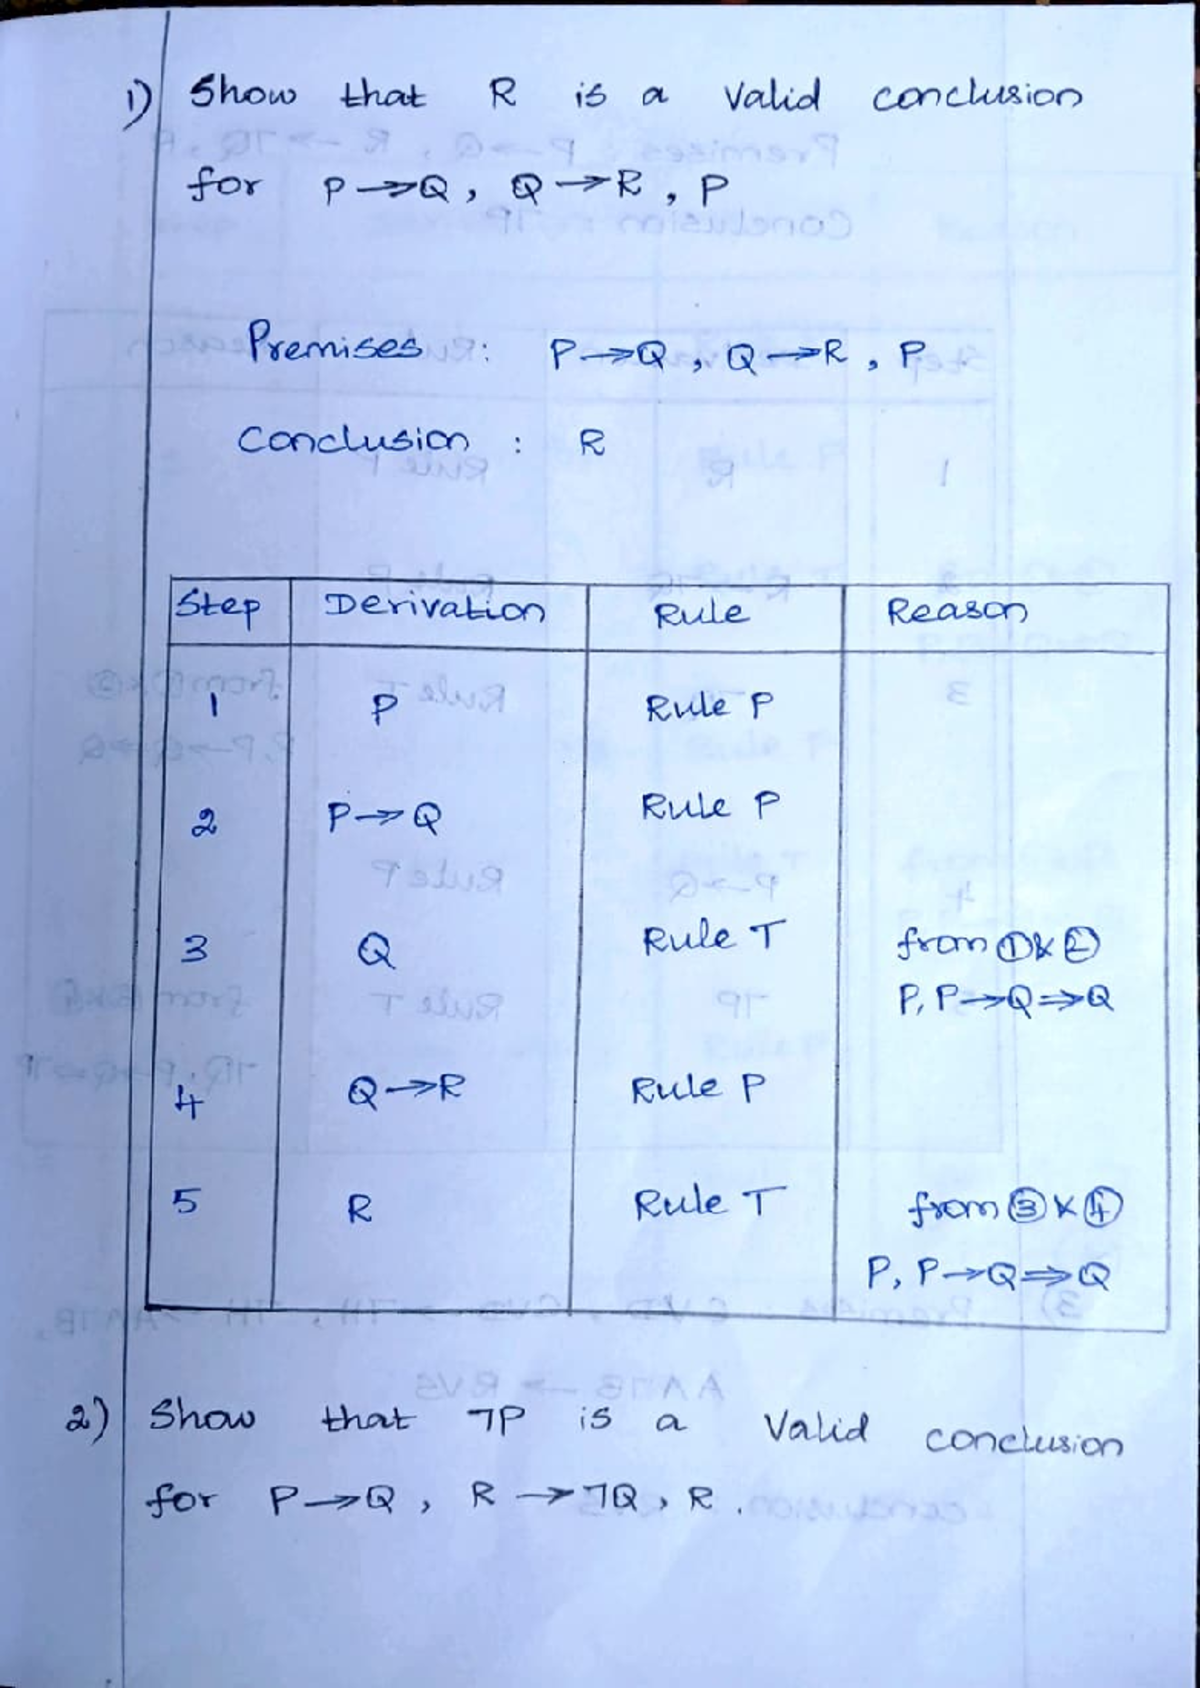 1) Show that R is a valid conclusion
for P→Q, Q→R, P
Premises: P→Q, Q→R, P
Conclusion : R
Step Derivation Rule Reason
1 P Rule P
2 P→Q Rule P
3 Q Rule T from ①&②
P, P→Q⇒Q
4 Q→R Rule P
5 R Rule T from ③&④
P, P→Q⇒Q
2) Show that ¬P is a valid conclusion
for P→Q, R→¬Q, R.